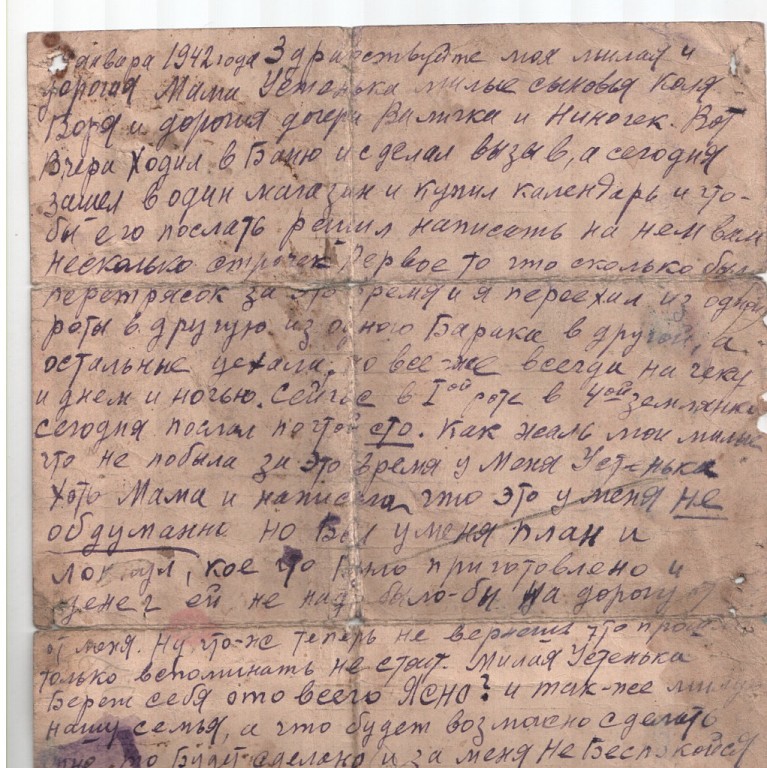 января 1942 года Здравствуйте моя милая и
дорогая Мама Устенька милые сыновья Коля
Вова и дорогия дочери Валичка и Ниночек. Вот
вчера ходил в Баню и сделал вызыв, а сегодня
зашел в один магазин и купил календарь и что-
бы его послать решил написать на нем вам
несколько строчек Первое то что сколько был
перетрясок за это время и я переехал из одной
роты в другую из одного Барака в другой, а
остальные уехали, но все-же всегда на чеку
и днем и ночью. Сейчас в I ой роте в 4 ой землянке
сегодня послал почтой сто. Как жаль мои милые
что не побыла за это время у меня Устенька
хоть Мама и написала что это у меня не
обдуманно но Был у меня план и
кое что Было приготовлено и
денег ей не надо было-бы на дорогу
от меня. Ну что-ж теперь не вернешь что
только вспоминать не стоит. Милая Устенька
Береги себя ото всего Ясно? и так-же милую
нашу семья, а что будет возможно сделать
то Будет сделано и за меня не Беспокойся